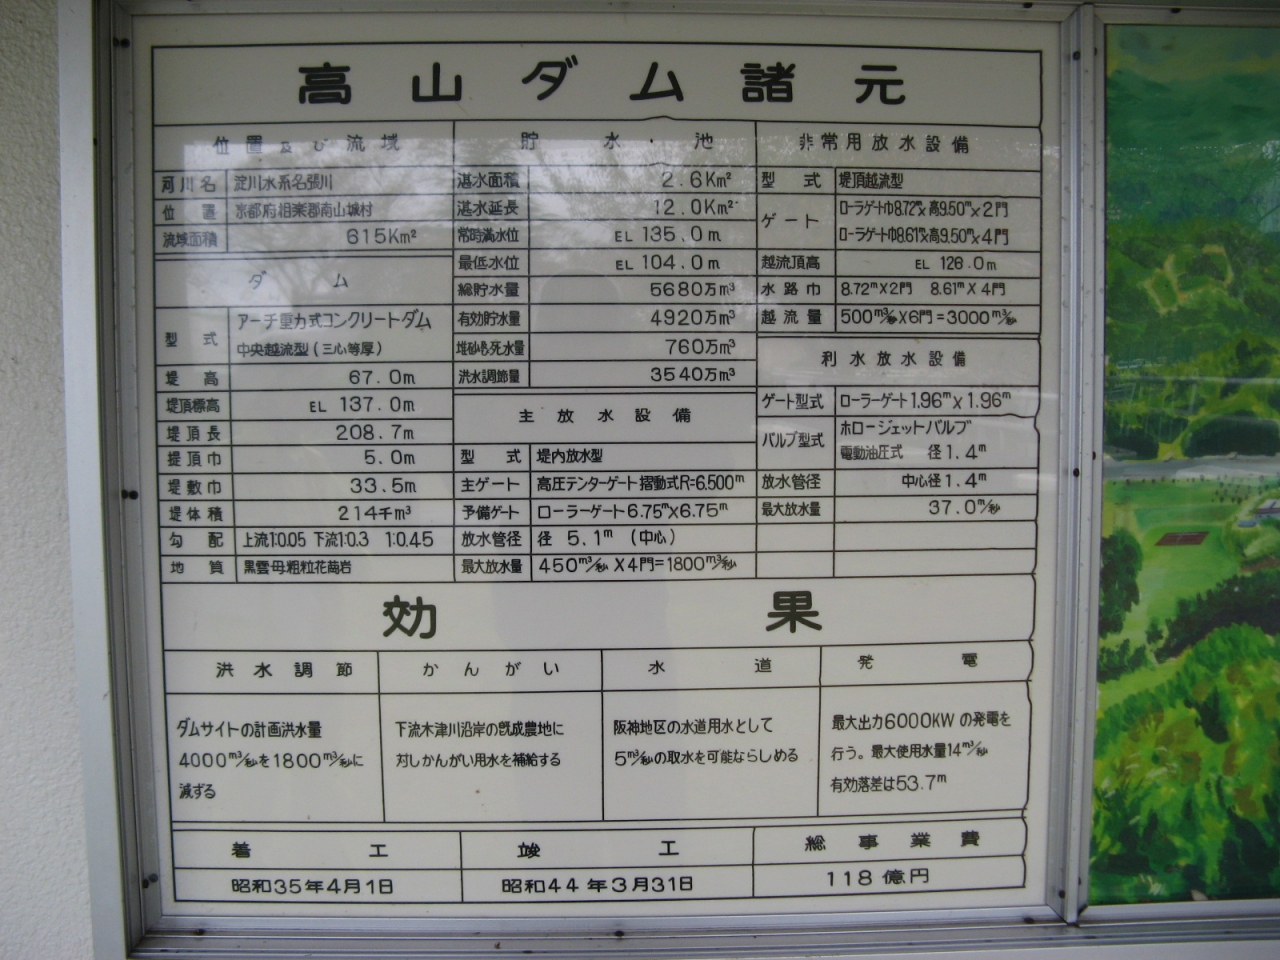 高山ダム諸元
位置及び流域
河川名 淀川水系名張川
位置 京都府相楽郡南山城村
流域面積 615Km²
ダム
型式 アーチ重力式コンクリートダム
中央越流型(三心等厚)
堤高 67.0m
堤頂標高 EL 137.0m
堤頂長 208.7m
提頂巾 5.0m
堤敷巾 33.5m
堤体積 214千m³
勾配 上流1:0.05 下流1:0.3 1:0.45
地質 黒雲母粗粒花崗岩
貯水・池
湛水面積 2.6Km²
湛水延長 12.0Km²
常時満水位 EL 135.0m
最低水位 EL 104.0m
総貯水量 5680万m³
有効貯水量 4920万m³
堆砂&死水量 760万m³
洪水調節量 3540万m³
主放水設備
型式 堤内放水型
主ゲート 高圧テンターゲート摺動式R=6.500m
予備ゲート ローラーゲート6.75m×6.75m
放水管径 径 5.1m (中心)
最大放水量 450m³/秒 X4門=1800m³/秒
非常用放水設備
型式 堤頂越流型
ゲート ローラゲート巾8.72m×高9.50m×2門
ローラゲート巾8.61m×高9.50m×4門
越流頂高 EL 126.0m
水路巾 8.72m×2門 8.61m×4門
越流量 500m³/秒×6門=3000m³/秒
利水放水設備
ゲート型式 ローラーゲート1.96m×1.96m
バルブ型式 ホロージェットバルブ
電動油圧式 径1.4m
放水管径 中心径1.4m
最大放水量 37.0m³/秒
効果
洪水調節
ダムサイトの計画洪水量
4000m³/秒を1800m³/秒に
減ずる
かんがい
下流木津川沿岸の既成農地に
対しかんがい用水を補給する
水道
阪神地区の水道用水として
5m³/秒の取水を可能ならしめる
発電
最大出力6000KWの発電を
行う。最大使用水量14m³/秒
有効落差は53.7m
着工 竣工 総事業費
昭和35年4月1日 昭和44年3月31日 118億円